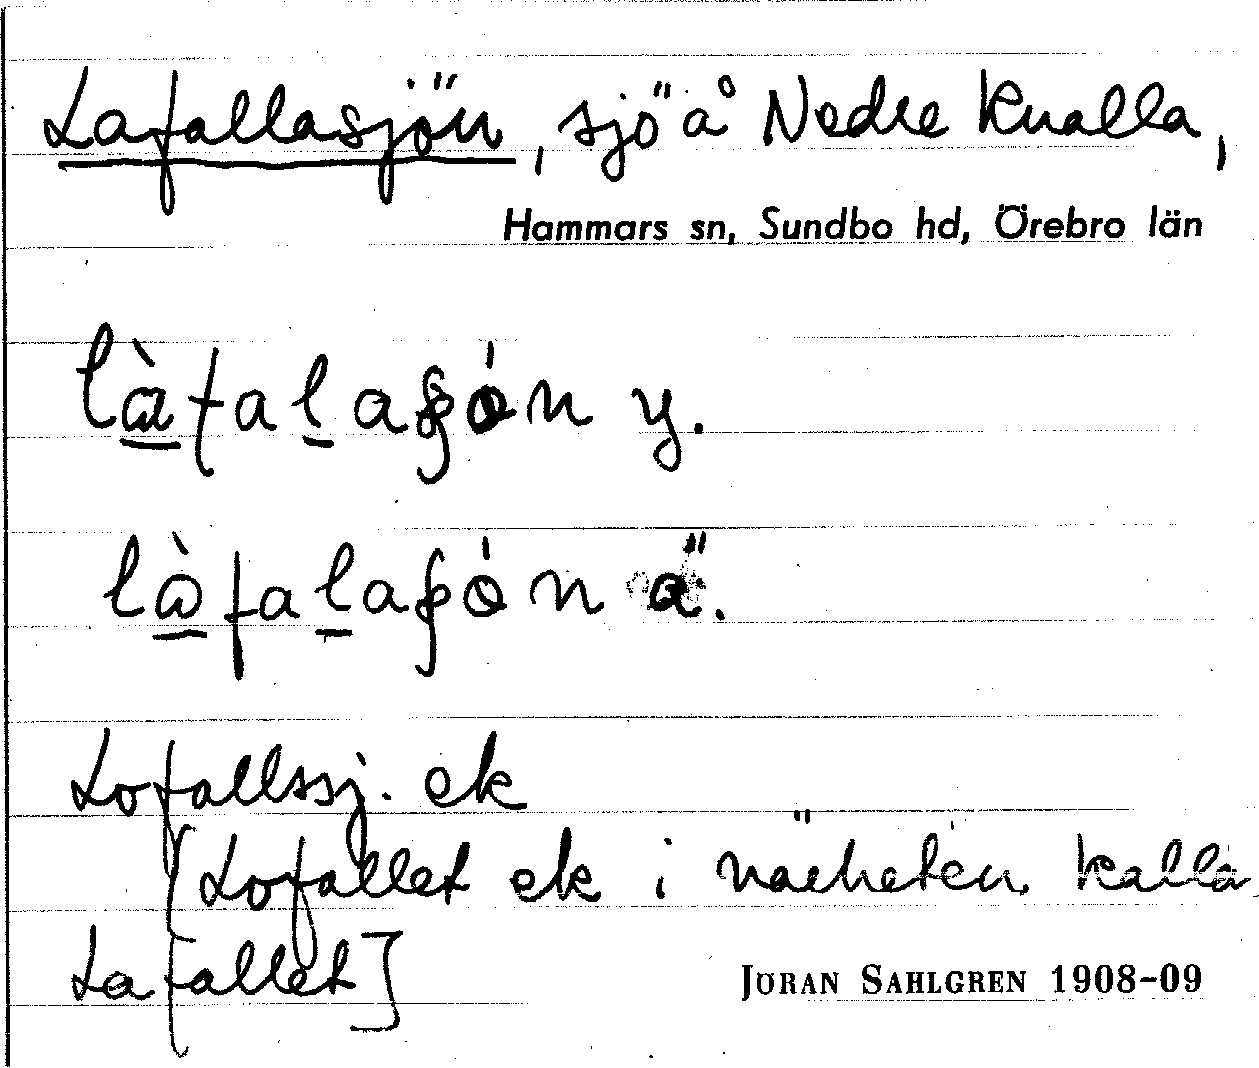 Lafallasjön, sjö å Nedre Knalla,
Hammars sn, Sundbo hd, Örebro län
làfalaʂón y.
làfalaʂón ä.
Lofallssj. ek
[Lofallet ek i närheten kalla
Lafallet]
JÖRAN SAHLGREN 1908-09